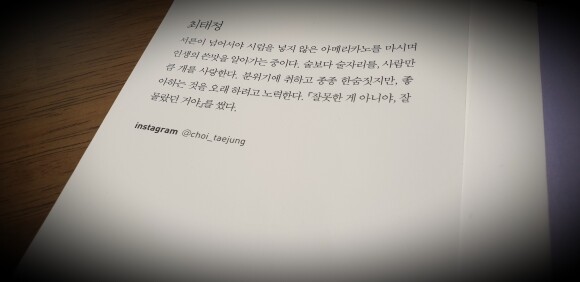 최태정
서른이 넘어서야 시럽을 넣지 않은 아메리카노를 마시며
인생의 쓴맛을 알아가는 중이다. 술보다 술자리를, 사람만
큼 개를 사랑한다. 분위기에 취하고 종종 한숨짓지만, 좋
아하는 것을 오래 하려고 노력한다. 『잘못한 게 아니야, 잘
몰랐던 거야』를 썼다.
instagram @choi_taejung